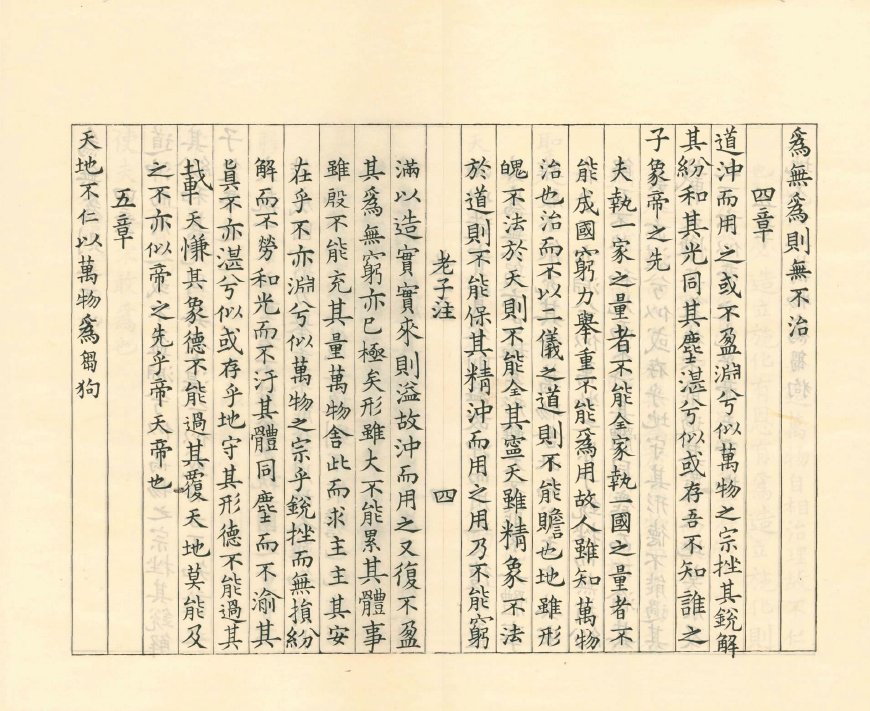 爲無爲則無不治
四章
道沖而用之或不盈淵兮似萬物之宗挫其銳解
其紛和其光同其塵湛兮似或存吾不知誰之
子象帝之先
夫執一家之量者不能全家執一國之量者不
能成國窮力舉重不能爲用故人雖知萬物
治也治而不以二儀之道則不能贍也地雖形
魄不法於天則不能全其寧天雖精象不法
於道則不能保其精沖而用之用乃不能窮
老子注 四
滿以造實實來則溢故沖而用之又復不盈
其爲無窮亦已極矣形雖大不能累其體事
雖殷不能充其量萬物舍此而求主主其安
在乎不亦淵兮似萬物之宗乎銳挫而無損紛
解而不勞和光而不汙其體同塵而不渝其
眞不亦湛兮似或存乎地守其形德不能過其
載天慊其象德不能過其覆天地莫能及
之不亦似帝之先乎帝天帝也
五章
天地不仁以萬物爲芻狗